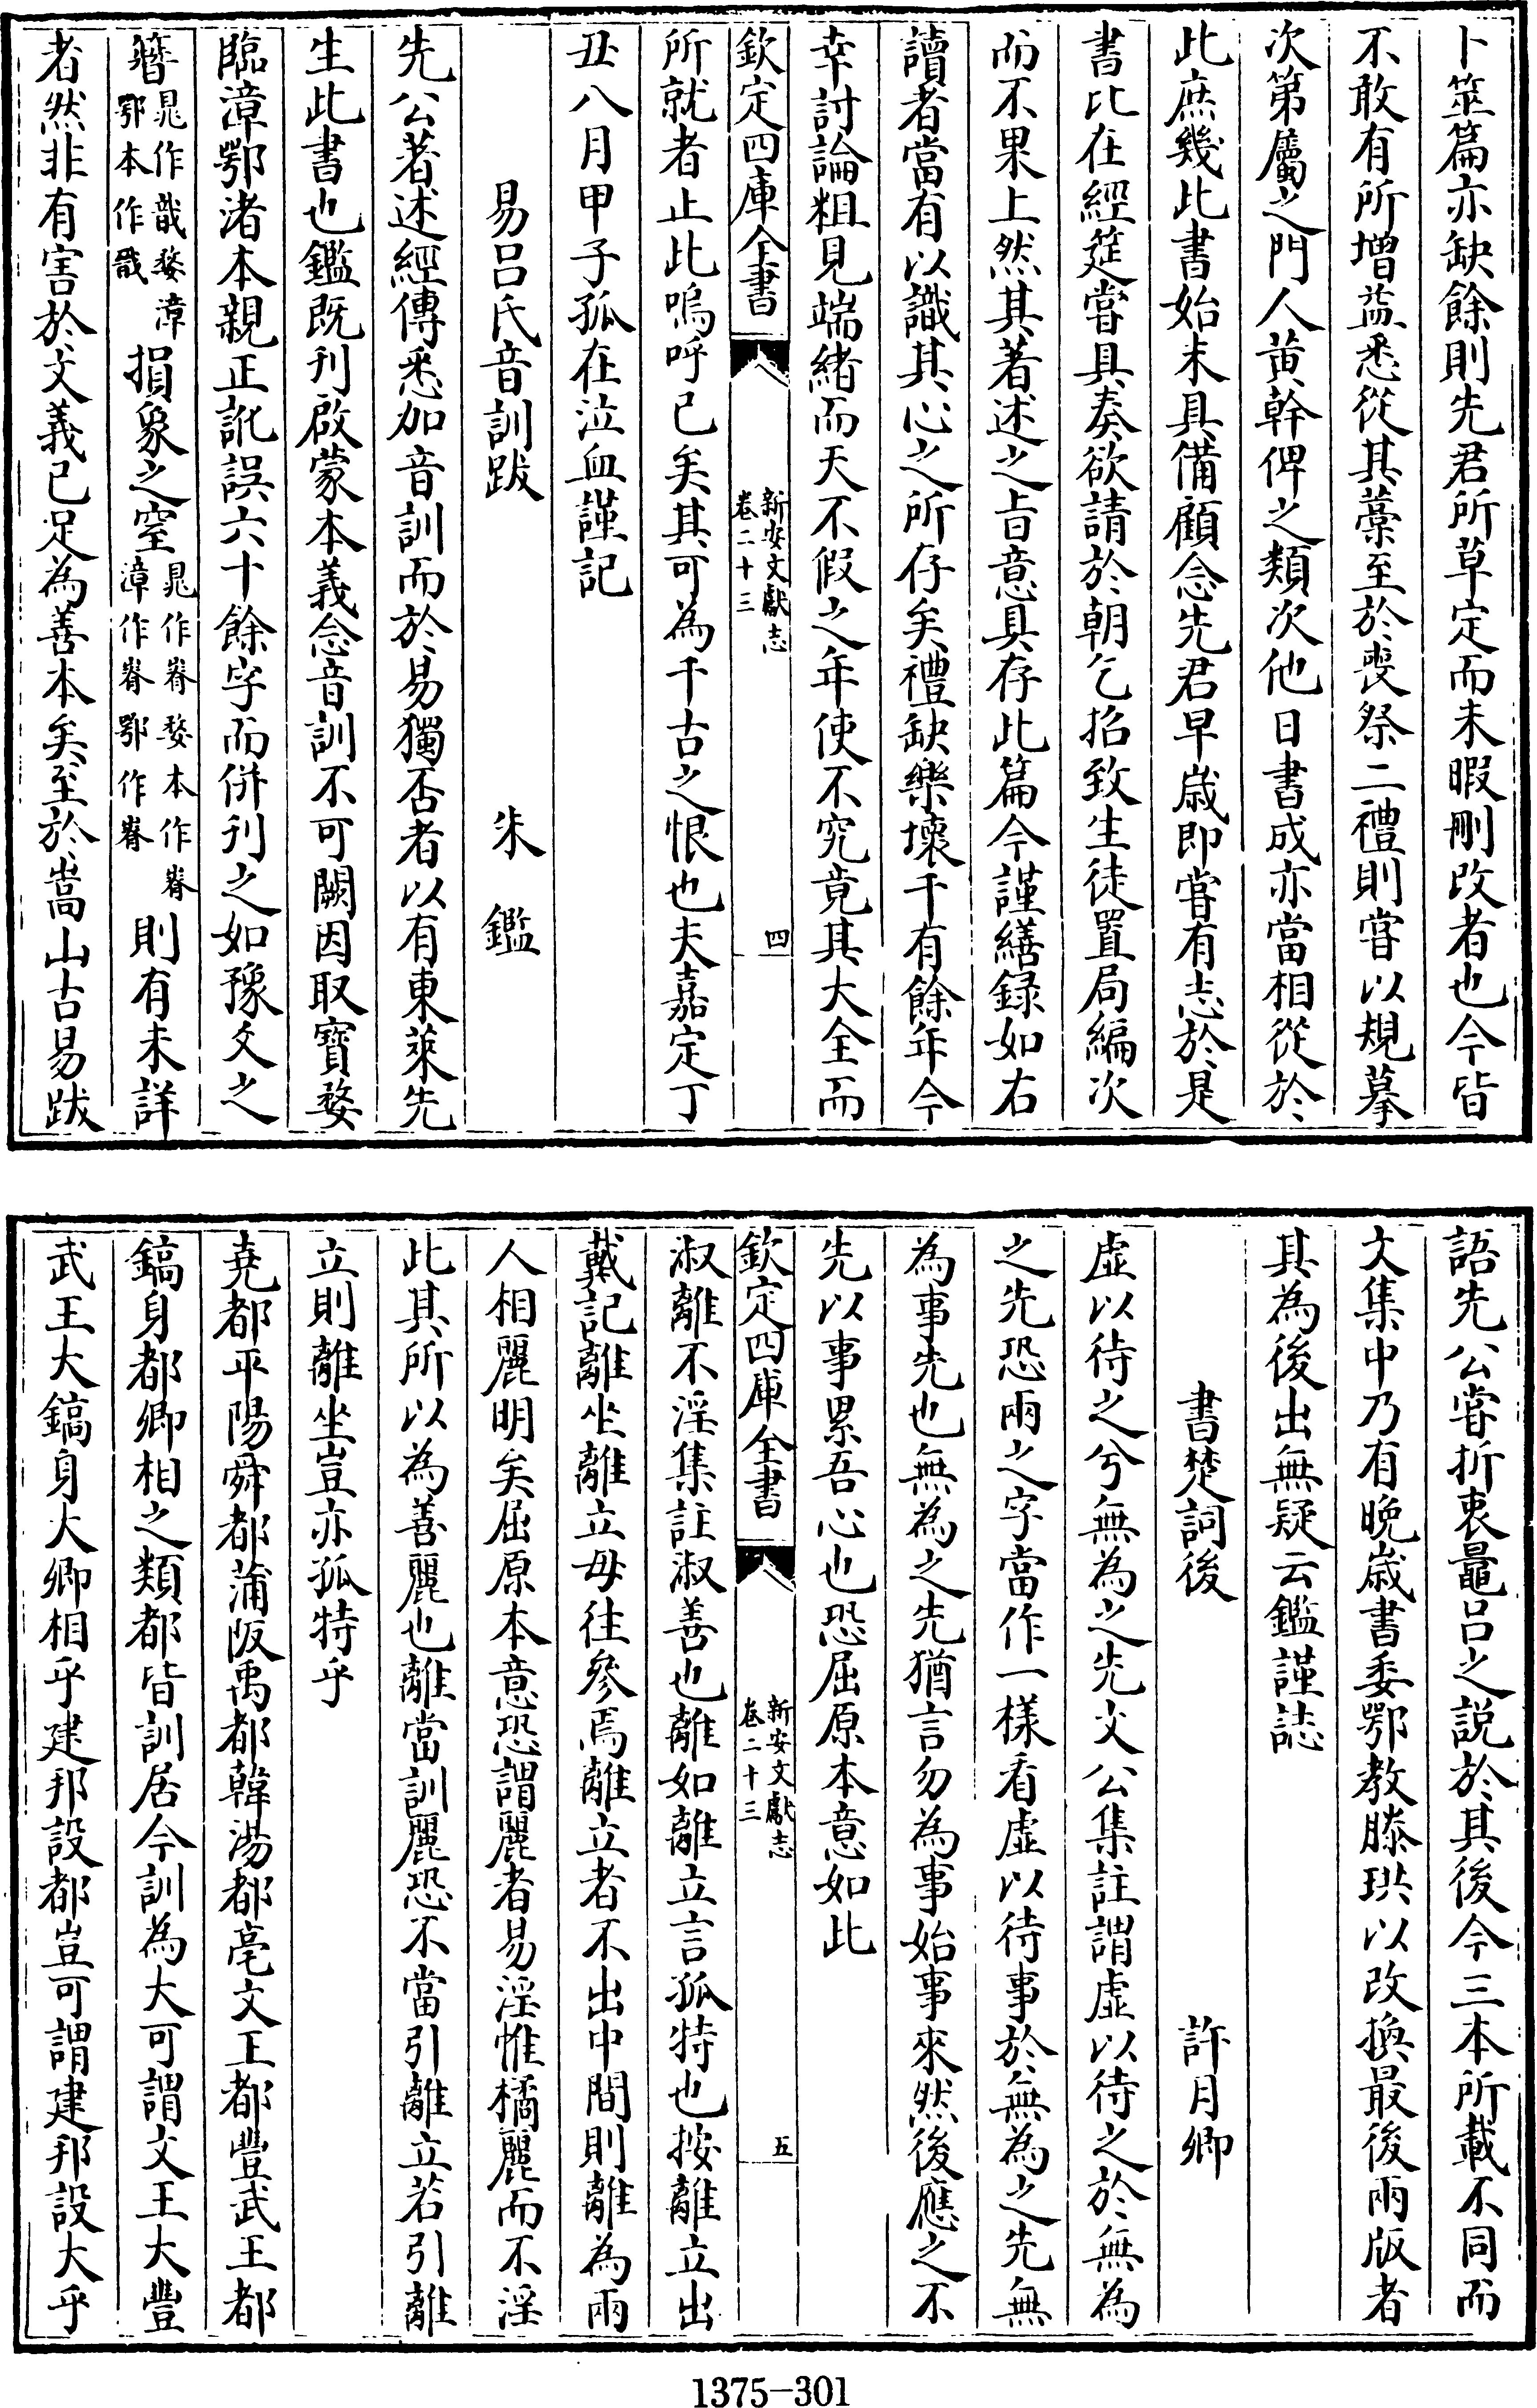 卜筮篇亦缺餘則先君所草定而未暇刪改者也今皆
不敢有所增益悉從其藁至於喪祭二禮則嘗以規摹
次第屬之門人黄幹俾之類次他日書成亦當相從於
此庶幾此書始末具備顧念先君早歳即嘗有志於是
書比在經筵嘗具奏欲請於朝乞招致生徒置局編次
而不果上然其著述之㫖意具存此篇今謹繕録如右
讀者當有以識其心之所存矣禮缺樂壞千有餘年今
幸討論粗見端緒而天不假之年使不究竟其大全而
欽定四庫全書
新安文獻志
卷二十三
四
所就者止此嗚呼已矣其可為千古之恨也夫嘉定丁
丑八月甲子孤在泣血謹記
易吕氏音訓跋 朱鑑
先公著述經傳悉加音訓而於易獨否者以有東萊先
生此書也鑑既刊啟蒙本義念音訓不可闕因取寳婺
臨漳鄂渚本親正訛誤六十餘字而併刊之如豫爻之
簪晁作戠婺漳
鄂本作戬
損象之窒晁作㟓婺本作㟓
漳作㟓鄂作㟓
則有未詳
者然非有害於文義已足為善本矣至於嵩山古易跋
語先公嘗折衷鼂吕之説於其後今三本所載不同而
文集中乃有晚歳書委鄂教滕珙以改換最後兩版者
其為後出無疑云鑑謹誌
書楚詞後 許月卿
虚以待之兮無為之先文公集註謂虚以待之於無為
之先恐兩之字當作一様看虚以待事於無為之先無
為事先也無為之先猶言勿為事始事來然後應之不
先以事累吾心也恐屈原本意如此
欽定四庫全書
新安文獻志
卷二十三
五
淑離不淫集註淑善也離如離立言孤特也按離立出
戴記離坐離立毋往參焉離立者不出中間則離為兩
人相麗明矣屈原本意恐謂麗者易淫惟橘麗而不淫
此其所以為善麗也離當訓麗恐不當引離立若引離
立則離坐豈亦孤特乎
堯都平陽舜都蒲阪禹都韓湯都亳文王都豐武王都
鎬身都卿相之類都皆訓居今訓為大可謂文王大豐
武王大鎬身大卿相乎建邦設都豈可謂建邦設大乎
1375-301